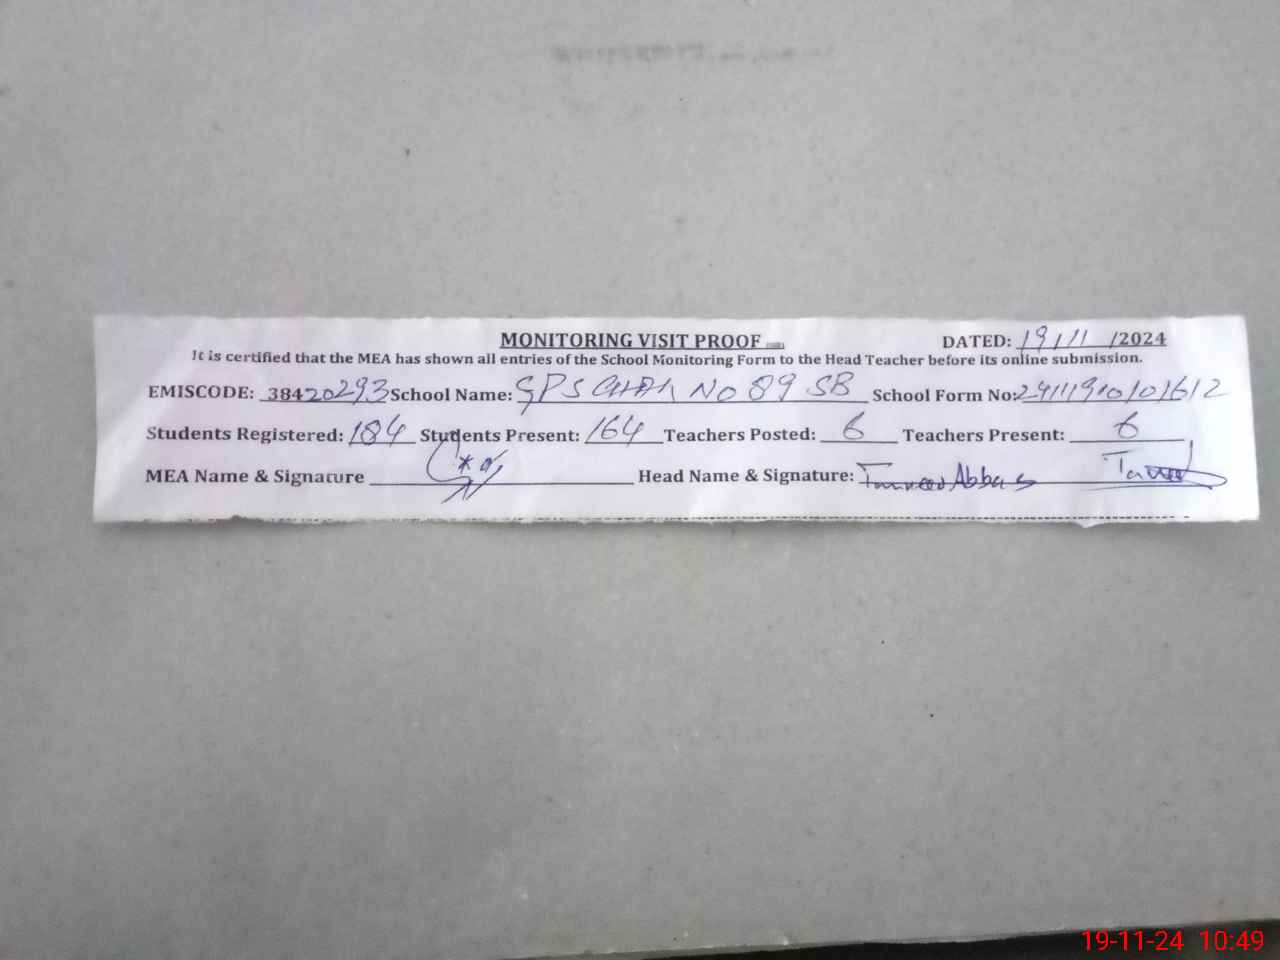 MONITORING VISIT PROOF DATED: 19/11/2024
It is certified that the MEA has shown all entries of the School Monitoring Form to the Head Teacher before its online submission.
EMISCODE: 38420293 School Name: GPS CHAK NO 89 SB School Form No:
Students Registered: 184 Students Present: 164 Teachers Posted: 6 Teachers Present: 6
MEA Name & Signature Head Name & Signature: Tanveer Abbas
19-11-24 10:49